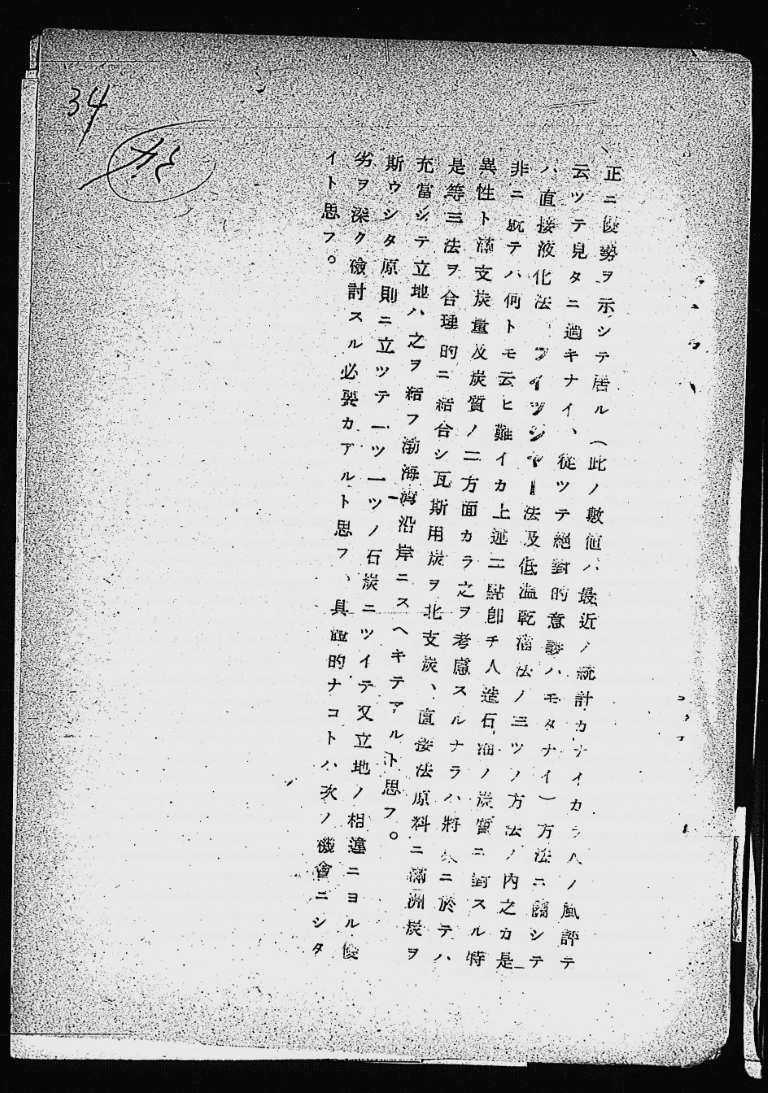 34
正ニ優勢ヲ示シテ居ル（此ノ數値ハ最近ノ統計カナイカラ人ノ風評テ
云ツテ見タニ過キナイ、從ツテ絕對的意義ハモタナイ）方法ニ關シテ
ハ直接液化法、フイツシヤー法及低溫乾溜法ノ三ツノ方法ノ內之カ是
非ニ就テハ何トモ云ヒ難イカ上述二點卽チ人造石油ノ炭質ニ對スル特
異性ト滿支炭量及炭質ノ二方面カラ之ヲ考慮スルナラハ將來ニ於テハ
是等三法ヲ合理的ニ結合シ瓦斯用炭ヲ北支炭、直接法原料ニ滿洲炭ヲ
充當シテ立地ハ之ヲ結フ渤海灣沿岸ニスヘキテアルト思フ。
斯ウシタ原則ニ立ツテ一ツ一ツノ石炭ニツイテ又立地ノ相違ニヨル優
劣ヲ深ク檢討スル必要カアルト思フ、具體的ナコトハ次ノ機會ニシタ
イト思フ。